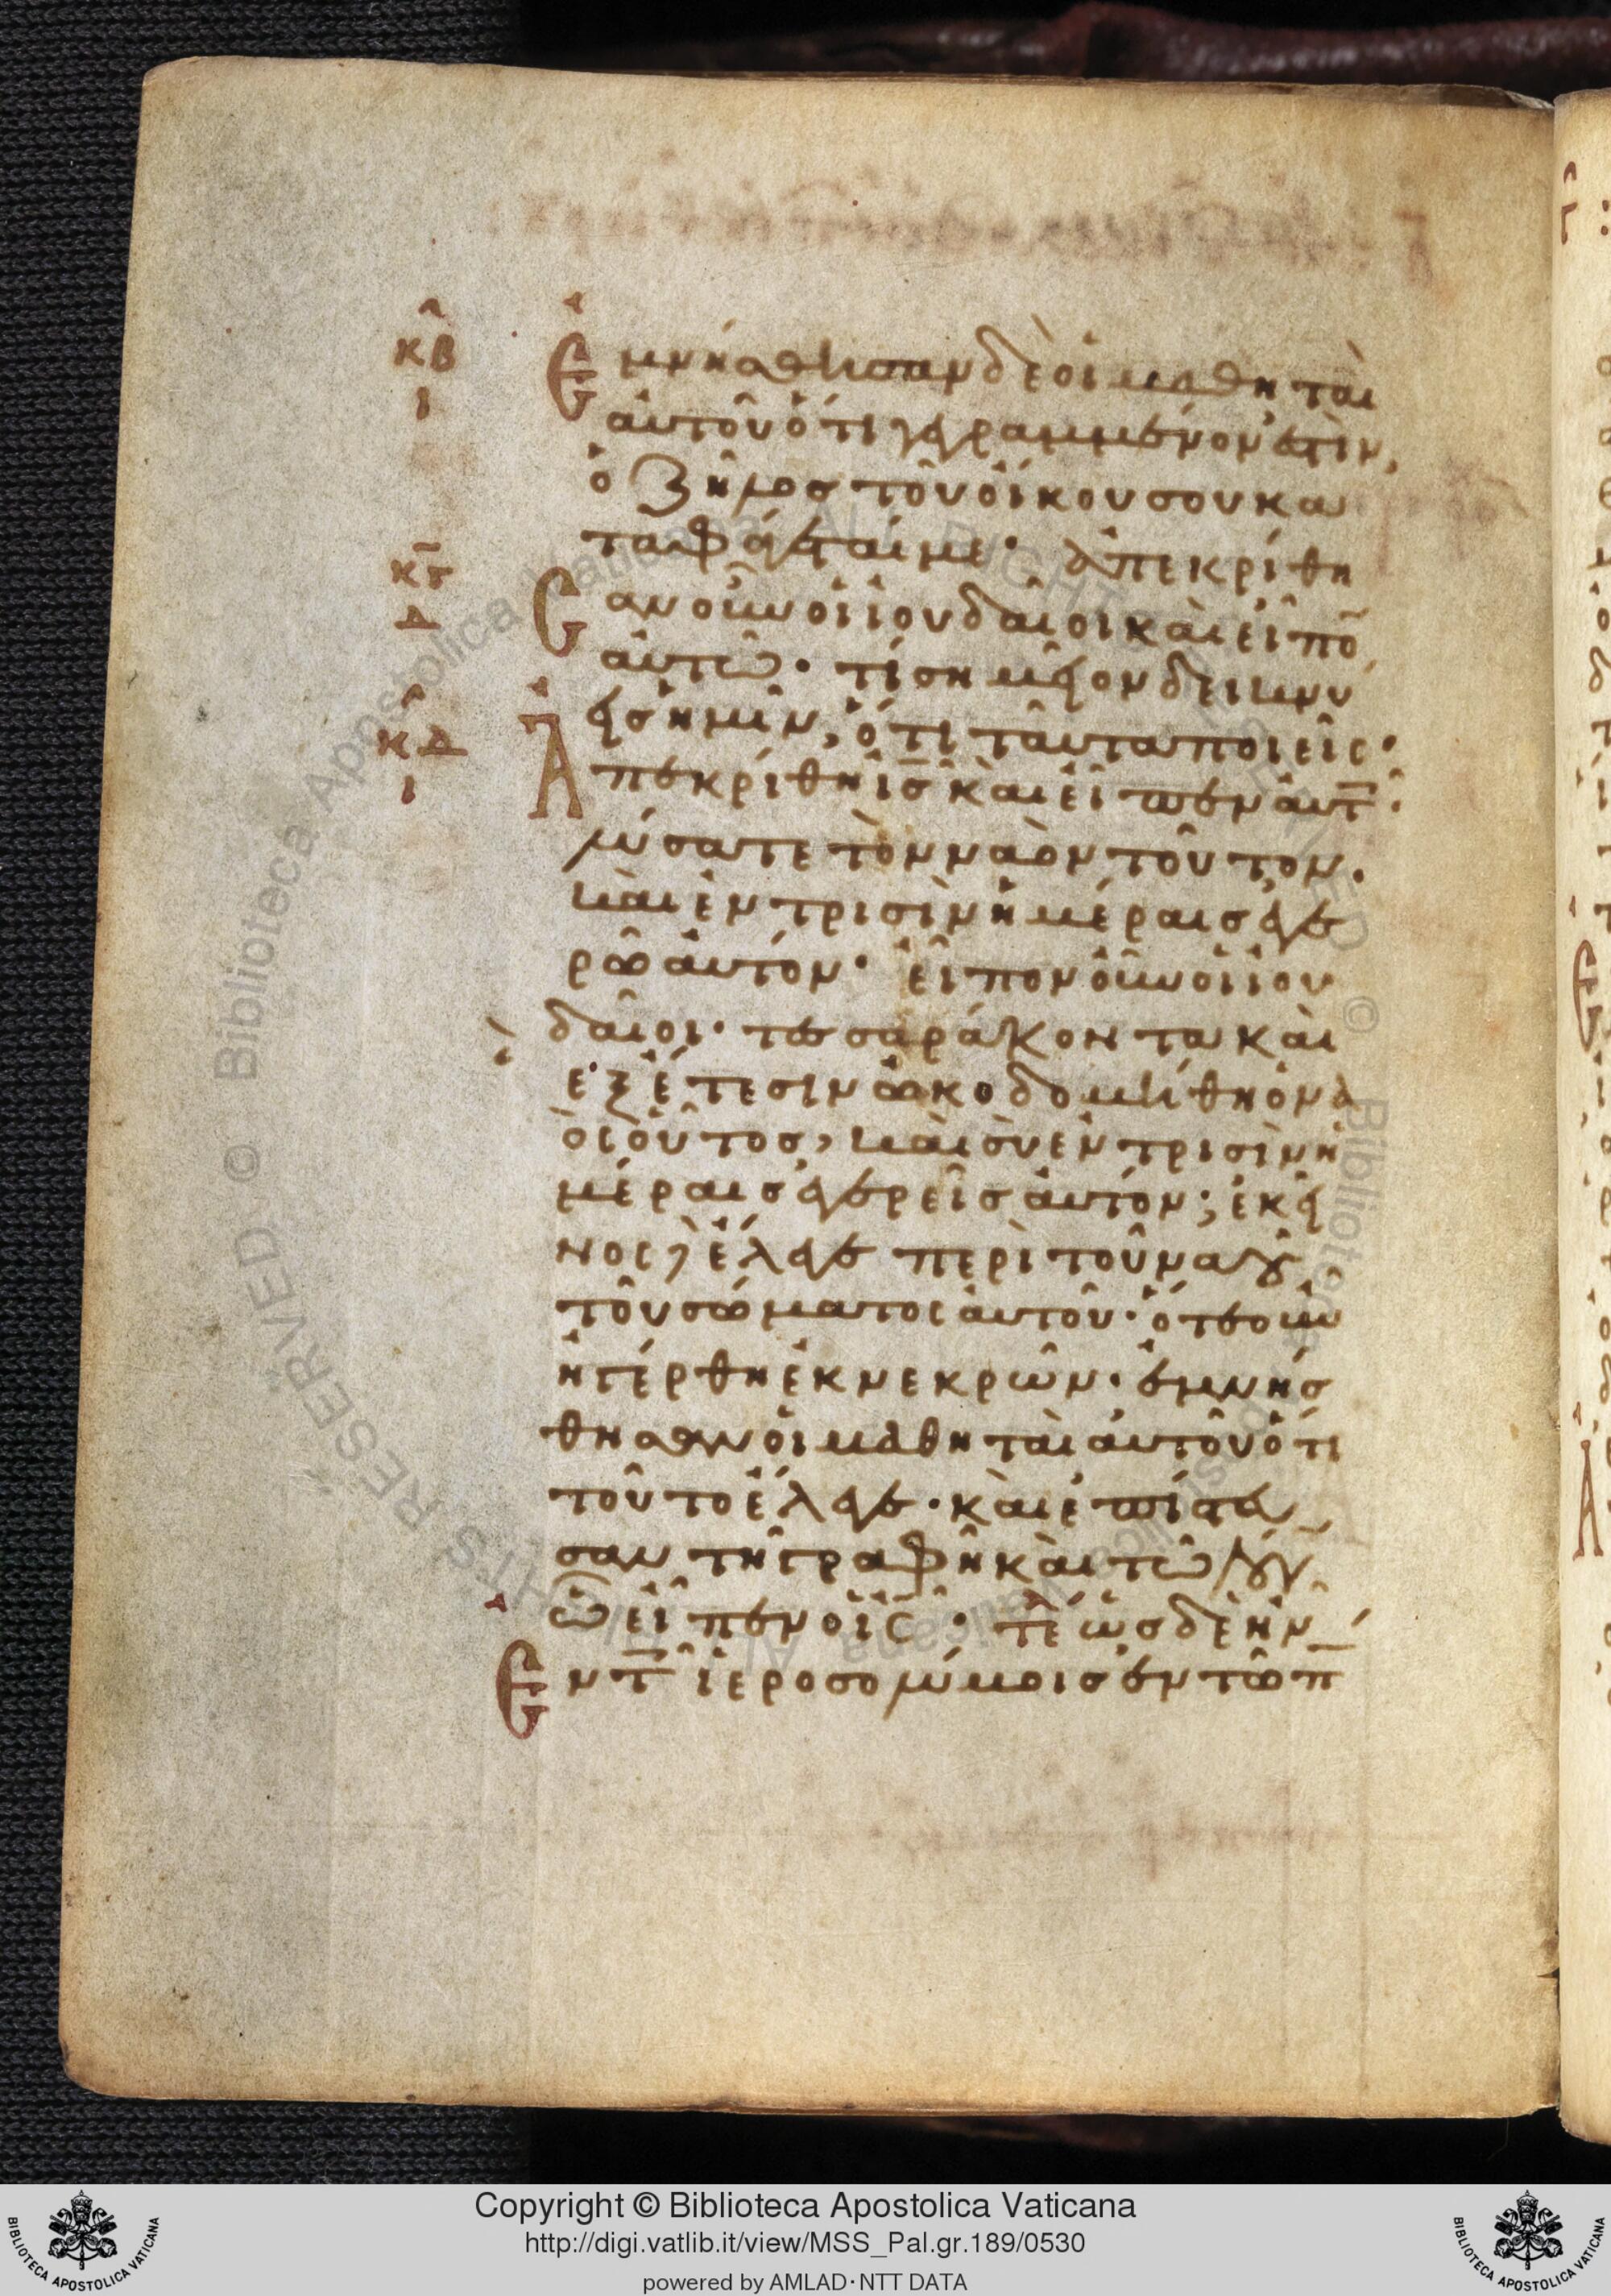 κβ
ι
Ἐμνήσθησαν δὲ οἱ μαθηταὶ
αὐτοῦ ὅτι γεγραμμένον ἐστὶν,
ὁ ζῆλος τοῦ οἴκου σου κα
ταφάγεταί με· ἀπεκρίθη
κγ
Δ
σαν οὖν οἱ ἰουδαῖοι καὶ εἶπο̄
αὐτῶ· τί σημεῖον δεικνύ
εις ἡμῖν, ὅτι ταῦτα ποιεῖς·
κδ
ι
Ἀπεκρίθη ἰς̄ καὶ εἶπεν αὐτ̄·
λύσατε τὸν ναὸν τοῦτον.
καὶ ἐν τρισὶν ἡμέραις ἐγε
ρῶ αὐτόν· εἶπον οὖν οἱ ἰου
δαῖοι· τεσσαράκοντα καὶ
ἓξ ἔτεσιν ὠκοδομήθη ὁ να
ὸς οὗτος, καὶ σὺ ἐν τρισὶν ἡ
μέραις ἐγερεῖς αὐτόν; ἐκεῖ
νος ἔλεγε περὶ τοῦ ναοῦ
τοῦ σώματος αὐτοῦ· ὅτε οὖν
ἠγέρθη ἐκ νεκρῶν· ἐμνήσ
θησαν οἱ μαθηταὶ αὐτοῦ ὅτι
τοῦτο ἔλεγε· καὶ ἐπίστευ
σαν τῆ γραφῆ καὶ τῶ λόγω
ὧ εἶπεν ὁ ἰς̄· τε ὡς δὲ ἦν
Ἐν τ̄ ἱεροσολύμοις ἐν τῶ π
Copyright © Biblioteca Apostolica Vaticana
http://digi.vatlib.it/view/MSS_Pal.gr.189/0530
powered by AMLAD·NTT DATA
BIBLIOTECA APOSTOLICA VATICANA
BIBLIOTECA APOSTOLICA VATICANA